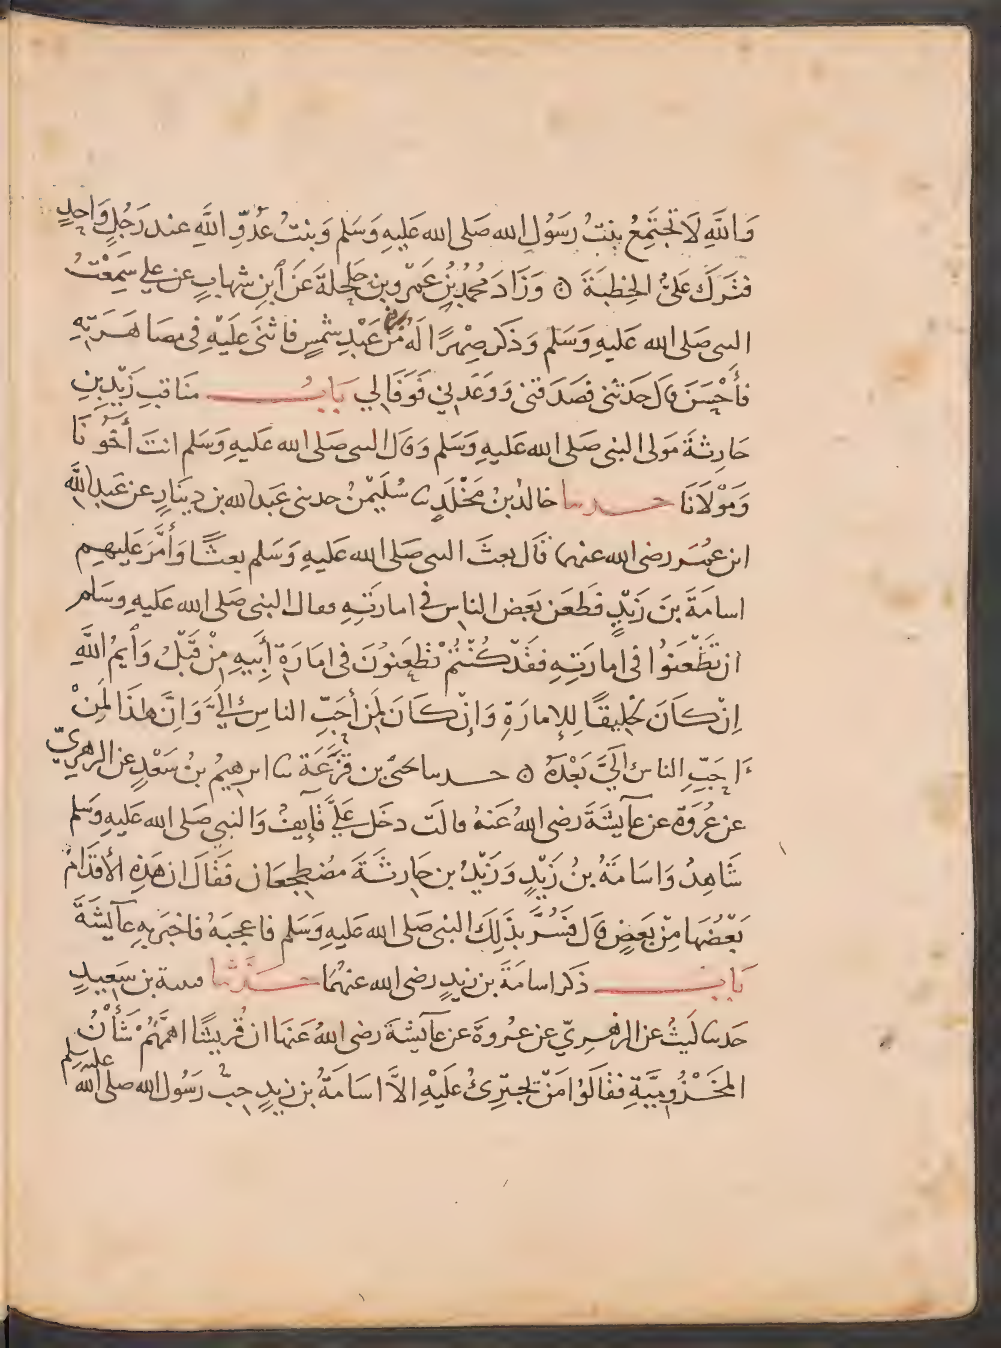 وَاللَّهِ لَا تَجْتَمِعُ بِنْتُ رَسُولِ الله صَلى الله عَليهِ وَسَلم وَبنتُ عَدُوِّ اللَّهِ عند رَجُلٍ وَاحِدٍ
فترَكَ عَلىُّ الخِطبَةَ ۞ وَزَادَ مُحمدُ بْنُ عَمْرِو بن حَلحلة عَن ابْنِ شهابٍ عن علي سَمِعْتُ
النبى صَلى الله عَليْهِ وَسَلم وَذكَر صِهْرًا لَهُ مِن بنى عَبْدِ شمْسٍ فاثنَى عَليْهِ فى مصَاهَرَتِهِ
فأَحْسَنَ قال حَدثنى فصَدَقنى وَوَعَدنِي فَوَفَا لِي بَابُ مَناقبِ زَيْدِ بنِ
حَارثةَ مَولى النبى صَلى الله عَليهِ وَسَلم وَقال النبى صَلى الله عَليهِ وَسَلم انتَ أَخُونَا
وَمَوْلَانَا حدثنا خالدُ بْنُ مَخْلَدٍ ثنا سُليْمٰنُ حدثنى عَبدالله بن دِينَارٍ عن عَبدِ اللَّهِ
ابن عُمَر رضى الله عنهما قَال بعثَ النبى صَلى الله عَليهِ وَسَلم بعثًا وَأَمَّرَ عَليهم
اسامَةَ بنَ زَيْدٍ فَطَعَن بَعْض الناسِ فى امارَتِهِ فقال النبى صَلى الله عَليهِ وسَلم
ان تَطْعَنُوا فى امارَتِهِ فَقَدْ كُنْتُمْ تَطْعنُونَ فى امَارَةِ أَبِيهِ مِنْ قَبْلُ وَأيمُ اللَّهِ
اِنْ كَانَ لخَلِيقًا لِلإمارَةِ وَاِنْ كَانَ لمَن أَحَبِّ الناسِ اِلَيَّ وَاِنَّ هٰذَا لَمِنْ
اَحَبِّ الناسِ اِلَيَّ بَعْدَهُ ۞ حدثنا يحيى بن قَزَعَة ثنا ابرهيمُ بنُ سَعْدٍ عن الزهرِيّ
عن عُرْوَة عن عآيشَةَ رَضى اللهُ عَنهُ قالَت دخَل عَليَّ قآيِفٌ وَالنبي صَلى الله عَليهِ وَسَلم
شَاهِدٌ وَاسَامَةُ بنُ زَيْدٍ وَزَيْدُ بن حَارثَةَ مضْطجعَان فَقَالَ ان هَذِهِ الأقدَامَ
بَعْضُهَا مِنْ بَعْضٍ قال فَسُرَّ بذَلِكَ النبى صَلى الله عَليهِ وَسَلم فاعجبَهُ فاخبَر بهِ عآيشَةَ
بَابُ ذكر اسامَةَ بن زيدٍ رضى الله عنهُمَا حَدَّثنا قتيبة بن سَعِيدٍ
حَدثنا ليثٌ عن الزهرِيّ عن عروَةَ عن عآيشَةَ رضى اللهُ عَنهَا ان قُريشًا اهمَّهُمْ شَأْنُ
المَخْزُومِيَّةِ فقَالوُا مَنْ يجترِئُ عَليْهِ الاَّ اسَامَةُ بن زيدٍ حِبُّ رَسُول الله صلى الله
عليه وسلم